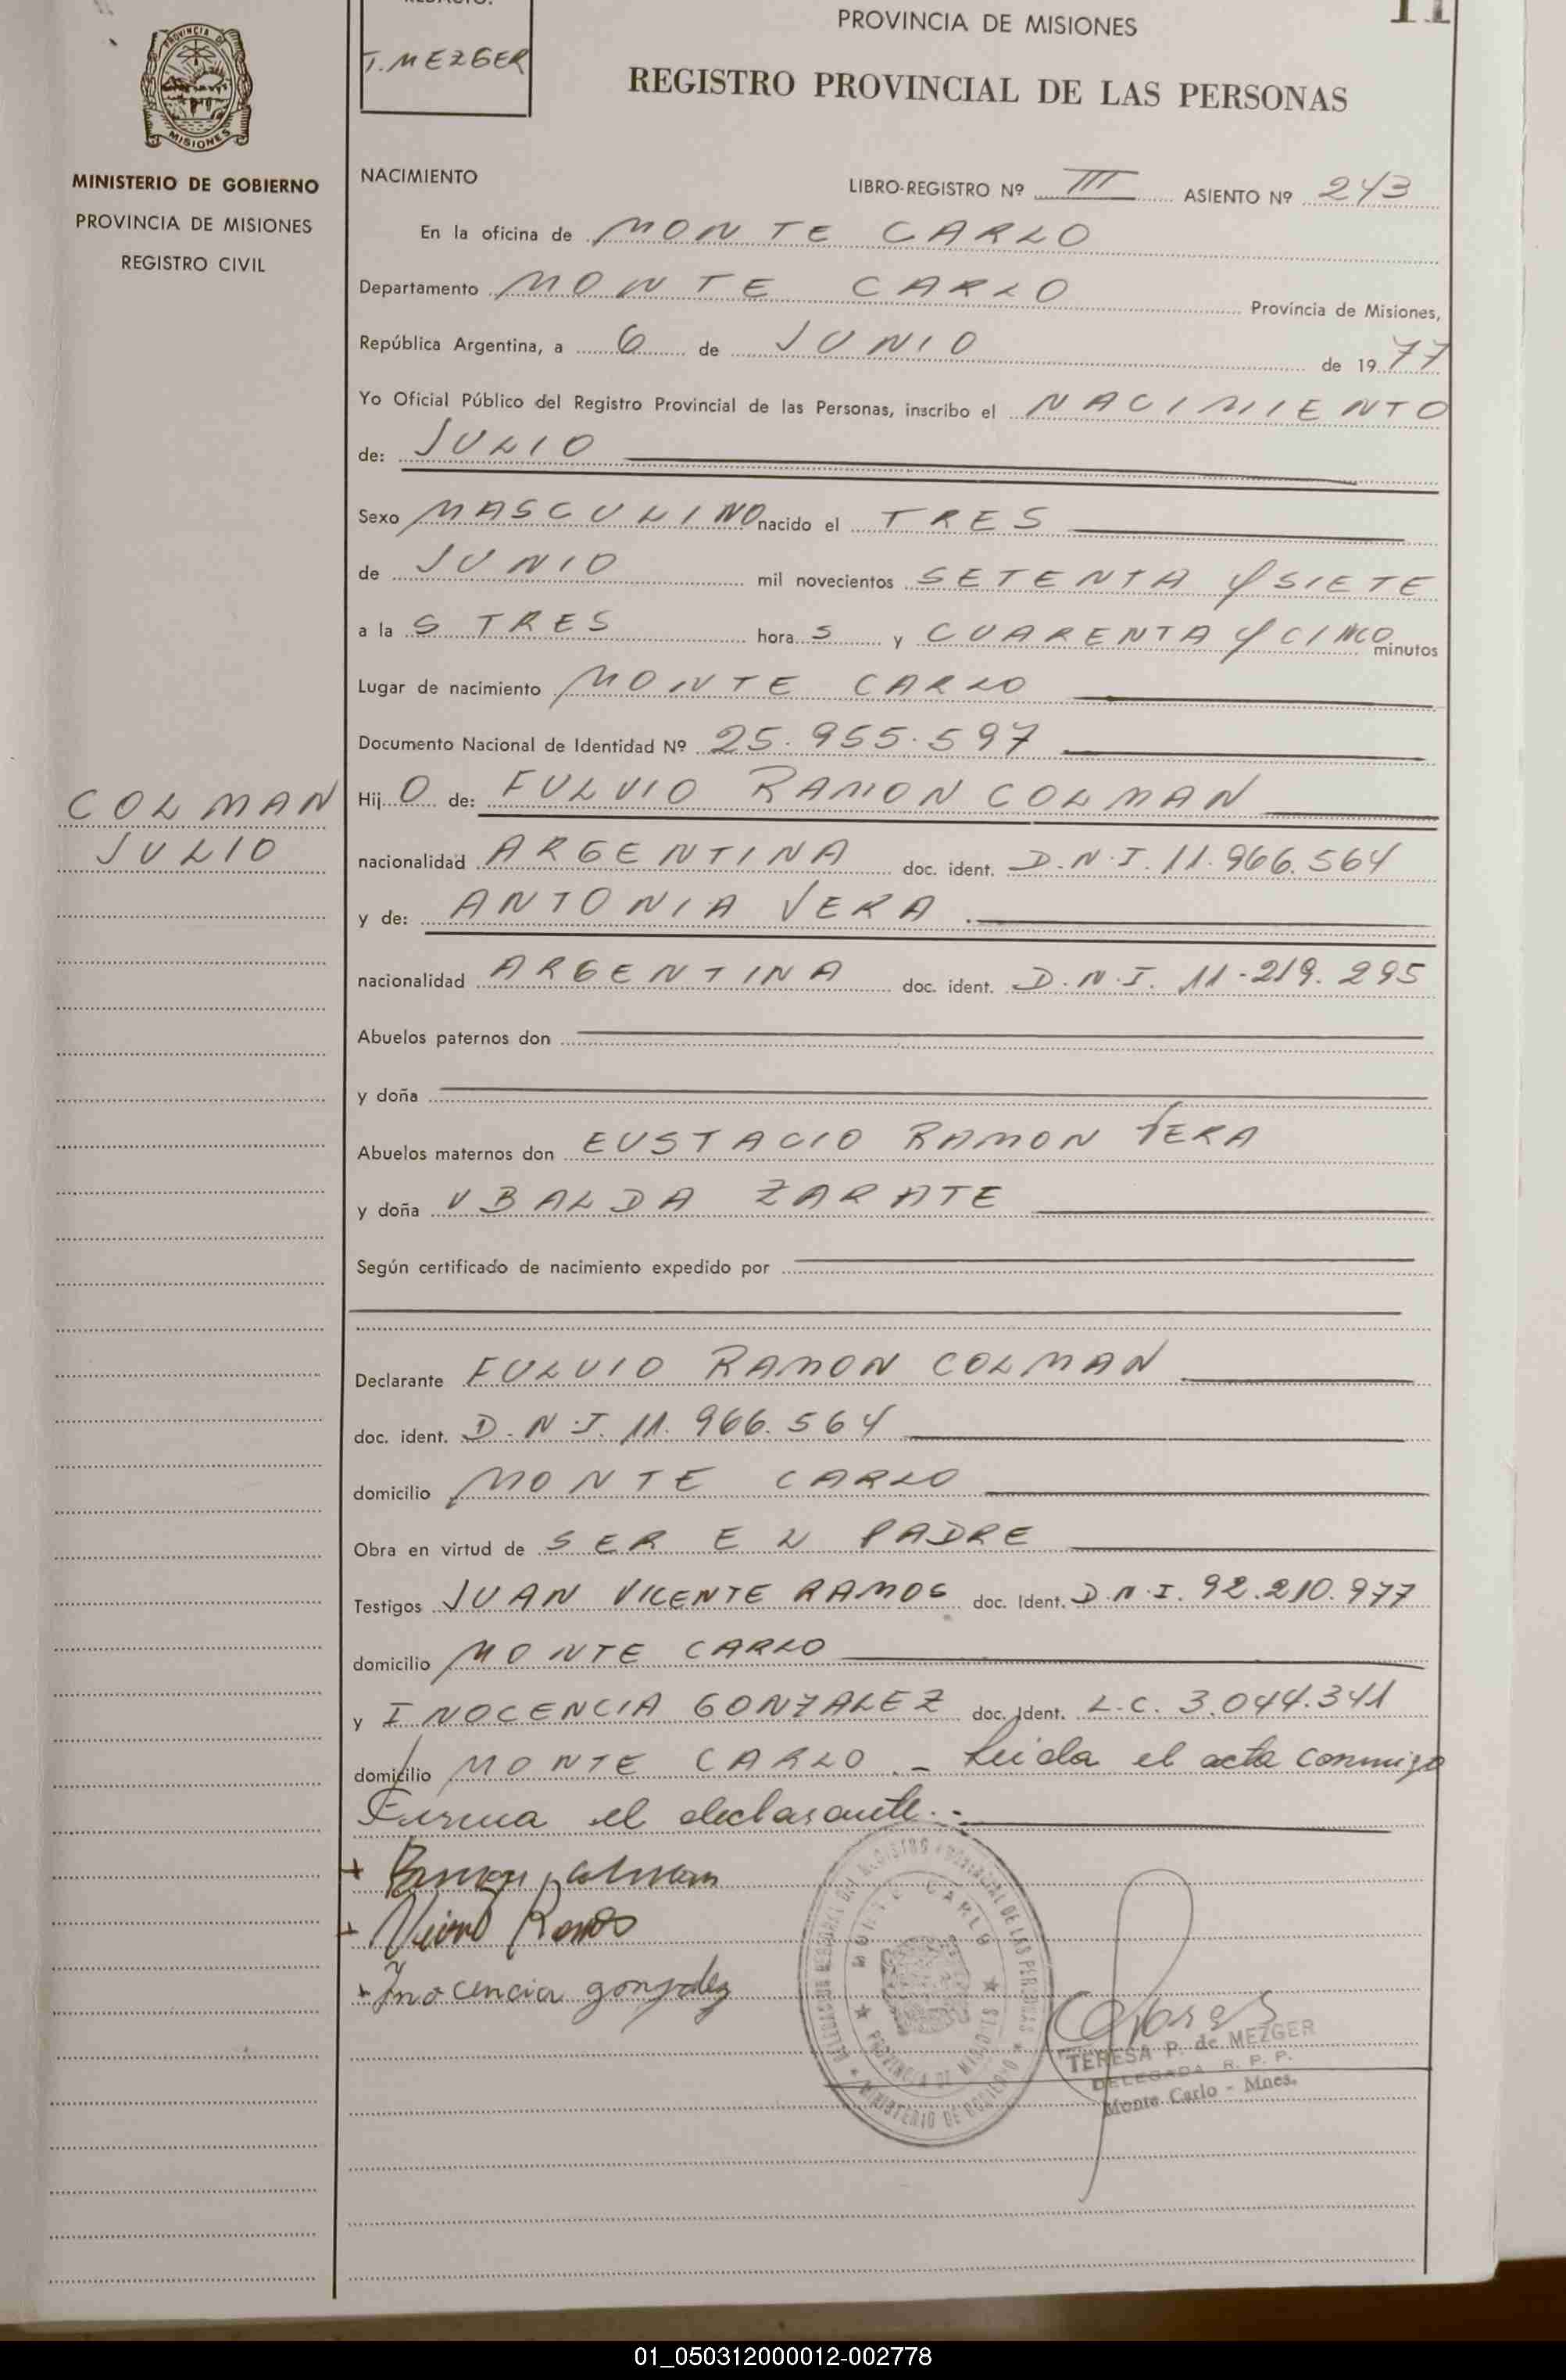 PROVINCIA DE MISIONES
11
T. MEZGER
REGISTRO PROVINCIAL DE LAS PERSONAS
PROVINCIA DE
MISIONES
MINISTERIO DE GOBIERNO
PROVINCIA DE MISIONES
REGISTRO CIVIL
COLMAN
JULIO
NACIMIENTO
LIBRO-REGISTRO Nº III ASIENTO Nº 243
En la oficina de MONTE CARLO
Departamento MONTE CARLO Provincia de Misiones,
República Argentina, a 6 de JUNIO de 1977
Yo Oficial Público del Registro Provincial de las Personas, inscribo el NACIMIENTO
de: JULIO
Sexo MASCULINO nacido el TRES
de JUNIO mil novecientos SETENTA Y SIETE
a la S TRES hora S y CUARENTA Y CINCO minutos
Lugar de nacimiento MONTE CARLO
Documento Nacional de Identidad Nº 25.955.597
Hij O de: FULVIO RAMON COLMAN
nacionalidad ARGENTINA doc. ident. D.N.I. 11.966.564
y de: ANTONIA VERA
nacionalidad ARGENTINA doc. ident. D.N.I. 11-219.295
Abuelos paternos don
y doña
Abuelos maternos don EUSTACIO RAMON VERA
y doña UBALDA ZARATE
Según certificado de nacimiento expedido por
Declarante FULVIO RAMON COLMAN
doc. ident. D.N.I. 11.966.564
domicilio MONTE CARLO
Obra en virtud de SER EL PADRE
Testigos JUAN VICENTE RAMOS doc. Ident. D.N.I. 92.210.977
domicilio MONTE CARLO
y INOCENCIA GONZALEZ doc. Ident. L.C. 3.044.341
domicilio MONTE CARLO.- Leida el acta conmigo
Firma el declarante.-
+ Ramon Colman
+ Ramos
+ Inocencia gonzalez
REGISTRO PROVINCIAL DE LAS PERSONAS
MONTE CARLO
PROVINCIA DE MISIONES
MINISTERIO DE GOBIERNO
TERESA P. de MEZGER
DELEGADA R. P. P.
Monte Carlo - Mnes.
01_050312000012-002778